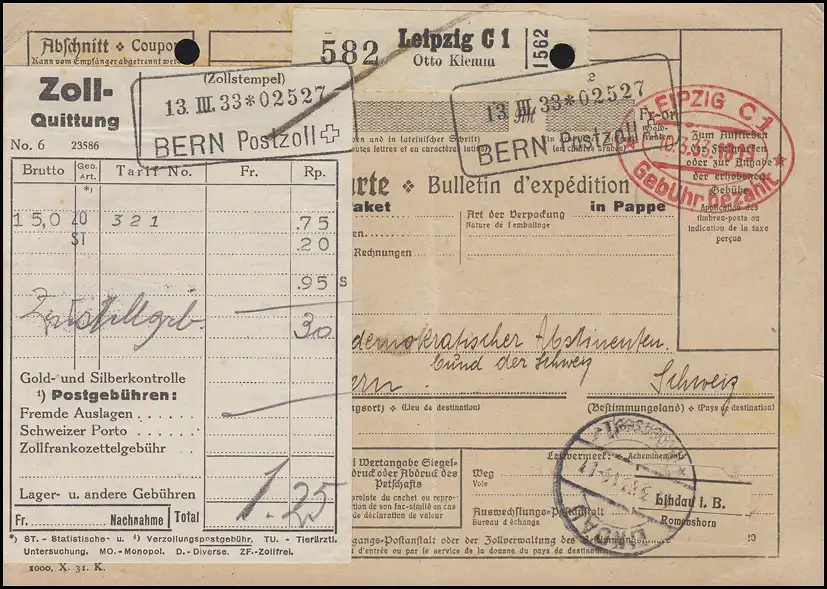 Abschnitt ❖ Coupon
Kann vom Empfänger abgetrennt werden
582
Leipzig C 1
Otto Klemm
1562
Zoll-
Quittung
No. 6 23586
(Zollstempel)
13. III. 33*02527
BERN Postzoll
2
13. III. 33*02527
BERN Postzoll
LEIPZIG C 1
Gebühr bezahlt
Zum Aufkleben
der Freimarken
oder zur Angabe
der erhobenen
Gebühr
Application des
timbres-poste ou
indication de la taxe
perçue
en und in lateinischer Schrift)
outes lettres et en caractères latins)
(en chiffres arabes)
arte ❖ Bulletin d'expédition
aket
in Pappe
Art der Verpackung
Nature de l'emballage
Rechnungen
Brutto Geo. Art. Tarif No. Fr. Rp.
*)
15,0 ZO 321 .75
ST .20
.95 S
Zustellgeb. 30
demokratischer Abstinenten
bund der Schweiz
ern Schweiz
ungsort) (Lieu de destination)
(Bestimmungsland) (Pays de destination)
Gold- und Silberkontrolle
¹) Postgebühren:
Fremde Auslagen
Schweizer Porto
Zollfrankozettelgebühr
Lager- u. andere Gebühren
Fr. Nachnahme
Total 1.25
*) ST. - Statistische- u. ¹) Verzollungspostgebühr, TU. - Tierärztl.
Untersuchung. MO.-Monopol. D.-Diverse. ZF.-Zollfrei.
1000. X. 31. K.
i Wertangabe Siegel-
druck oder Abdruck des
Petschafts
preinte du cachet ou repro-
on de son fac-similé en cas
de déclaration de valeur
Weg
Voie
Leitvermerk: Acheminement
Auswechslungs-Postanstalt
Bureau d'échange
Lindau i. B.
Romanshorn
LINDAU
(Bodensee)
gangs-Postanstalt oder der Zollverwaltung des Bestimmungslandes
d'entrée ou par le service de la douane du pays de destination)
20